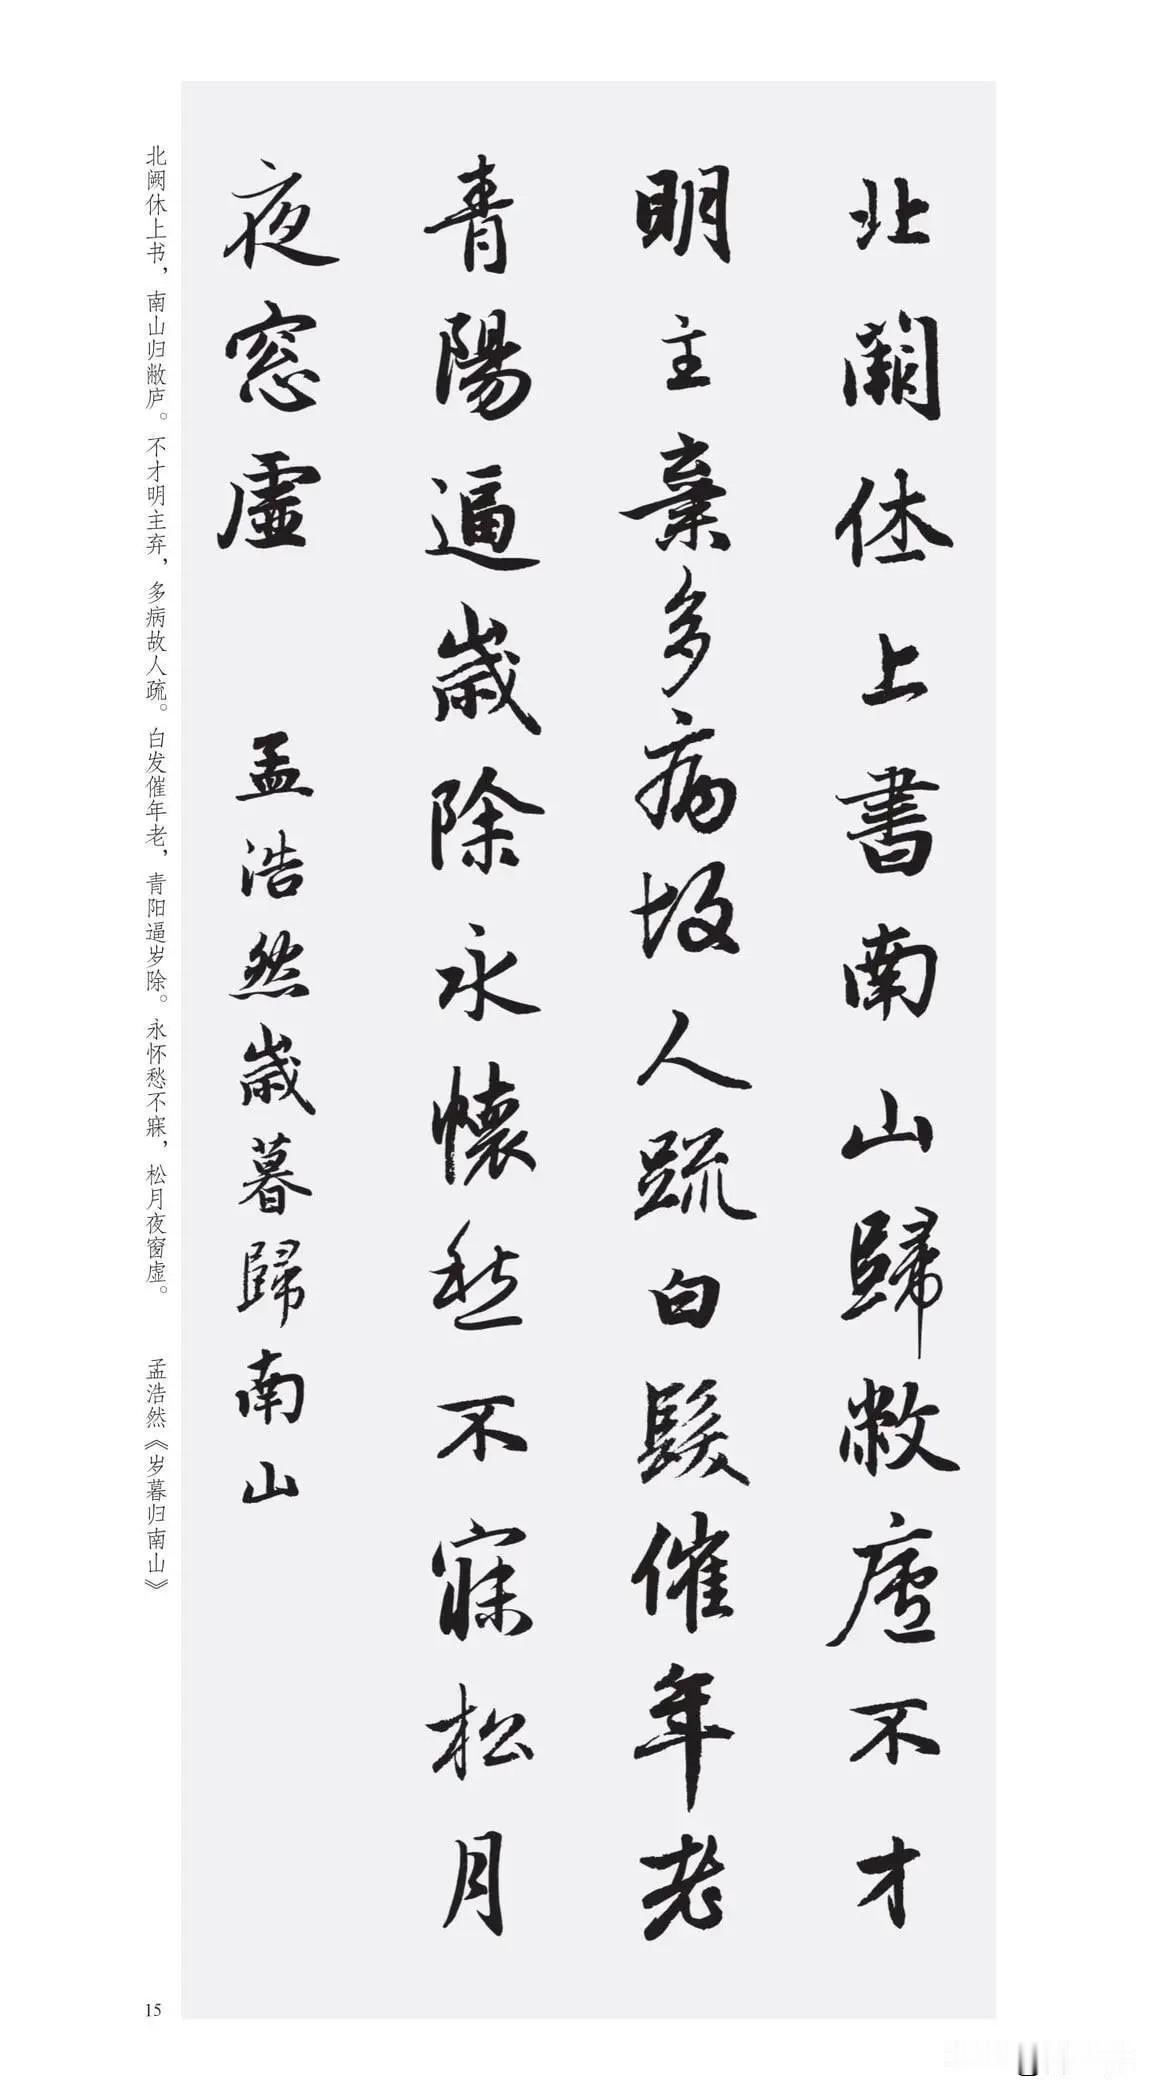 北闕休上書南山歸敝廬不才
明主棄多病故人疏白髮催年老
青陽逼歲除永懷愁不寐松月
夜窓虛
孟浩然歲暮歸南山
北阙休上书，南山归敝庐。不才明主弃，多病故人疏。白发催年老，青阳逼岁除。永怀愁不寐，松月夜窗虚。 孟浩然《岁暮归南山》
15